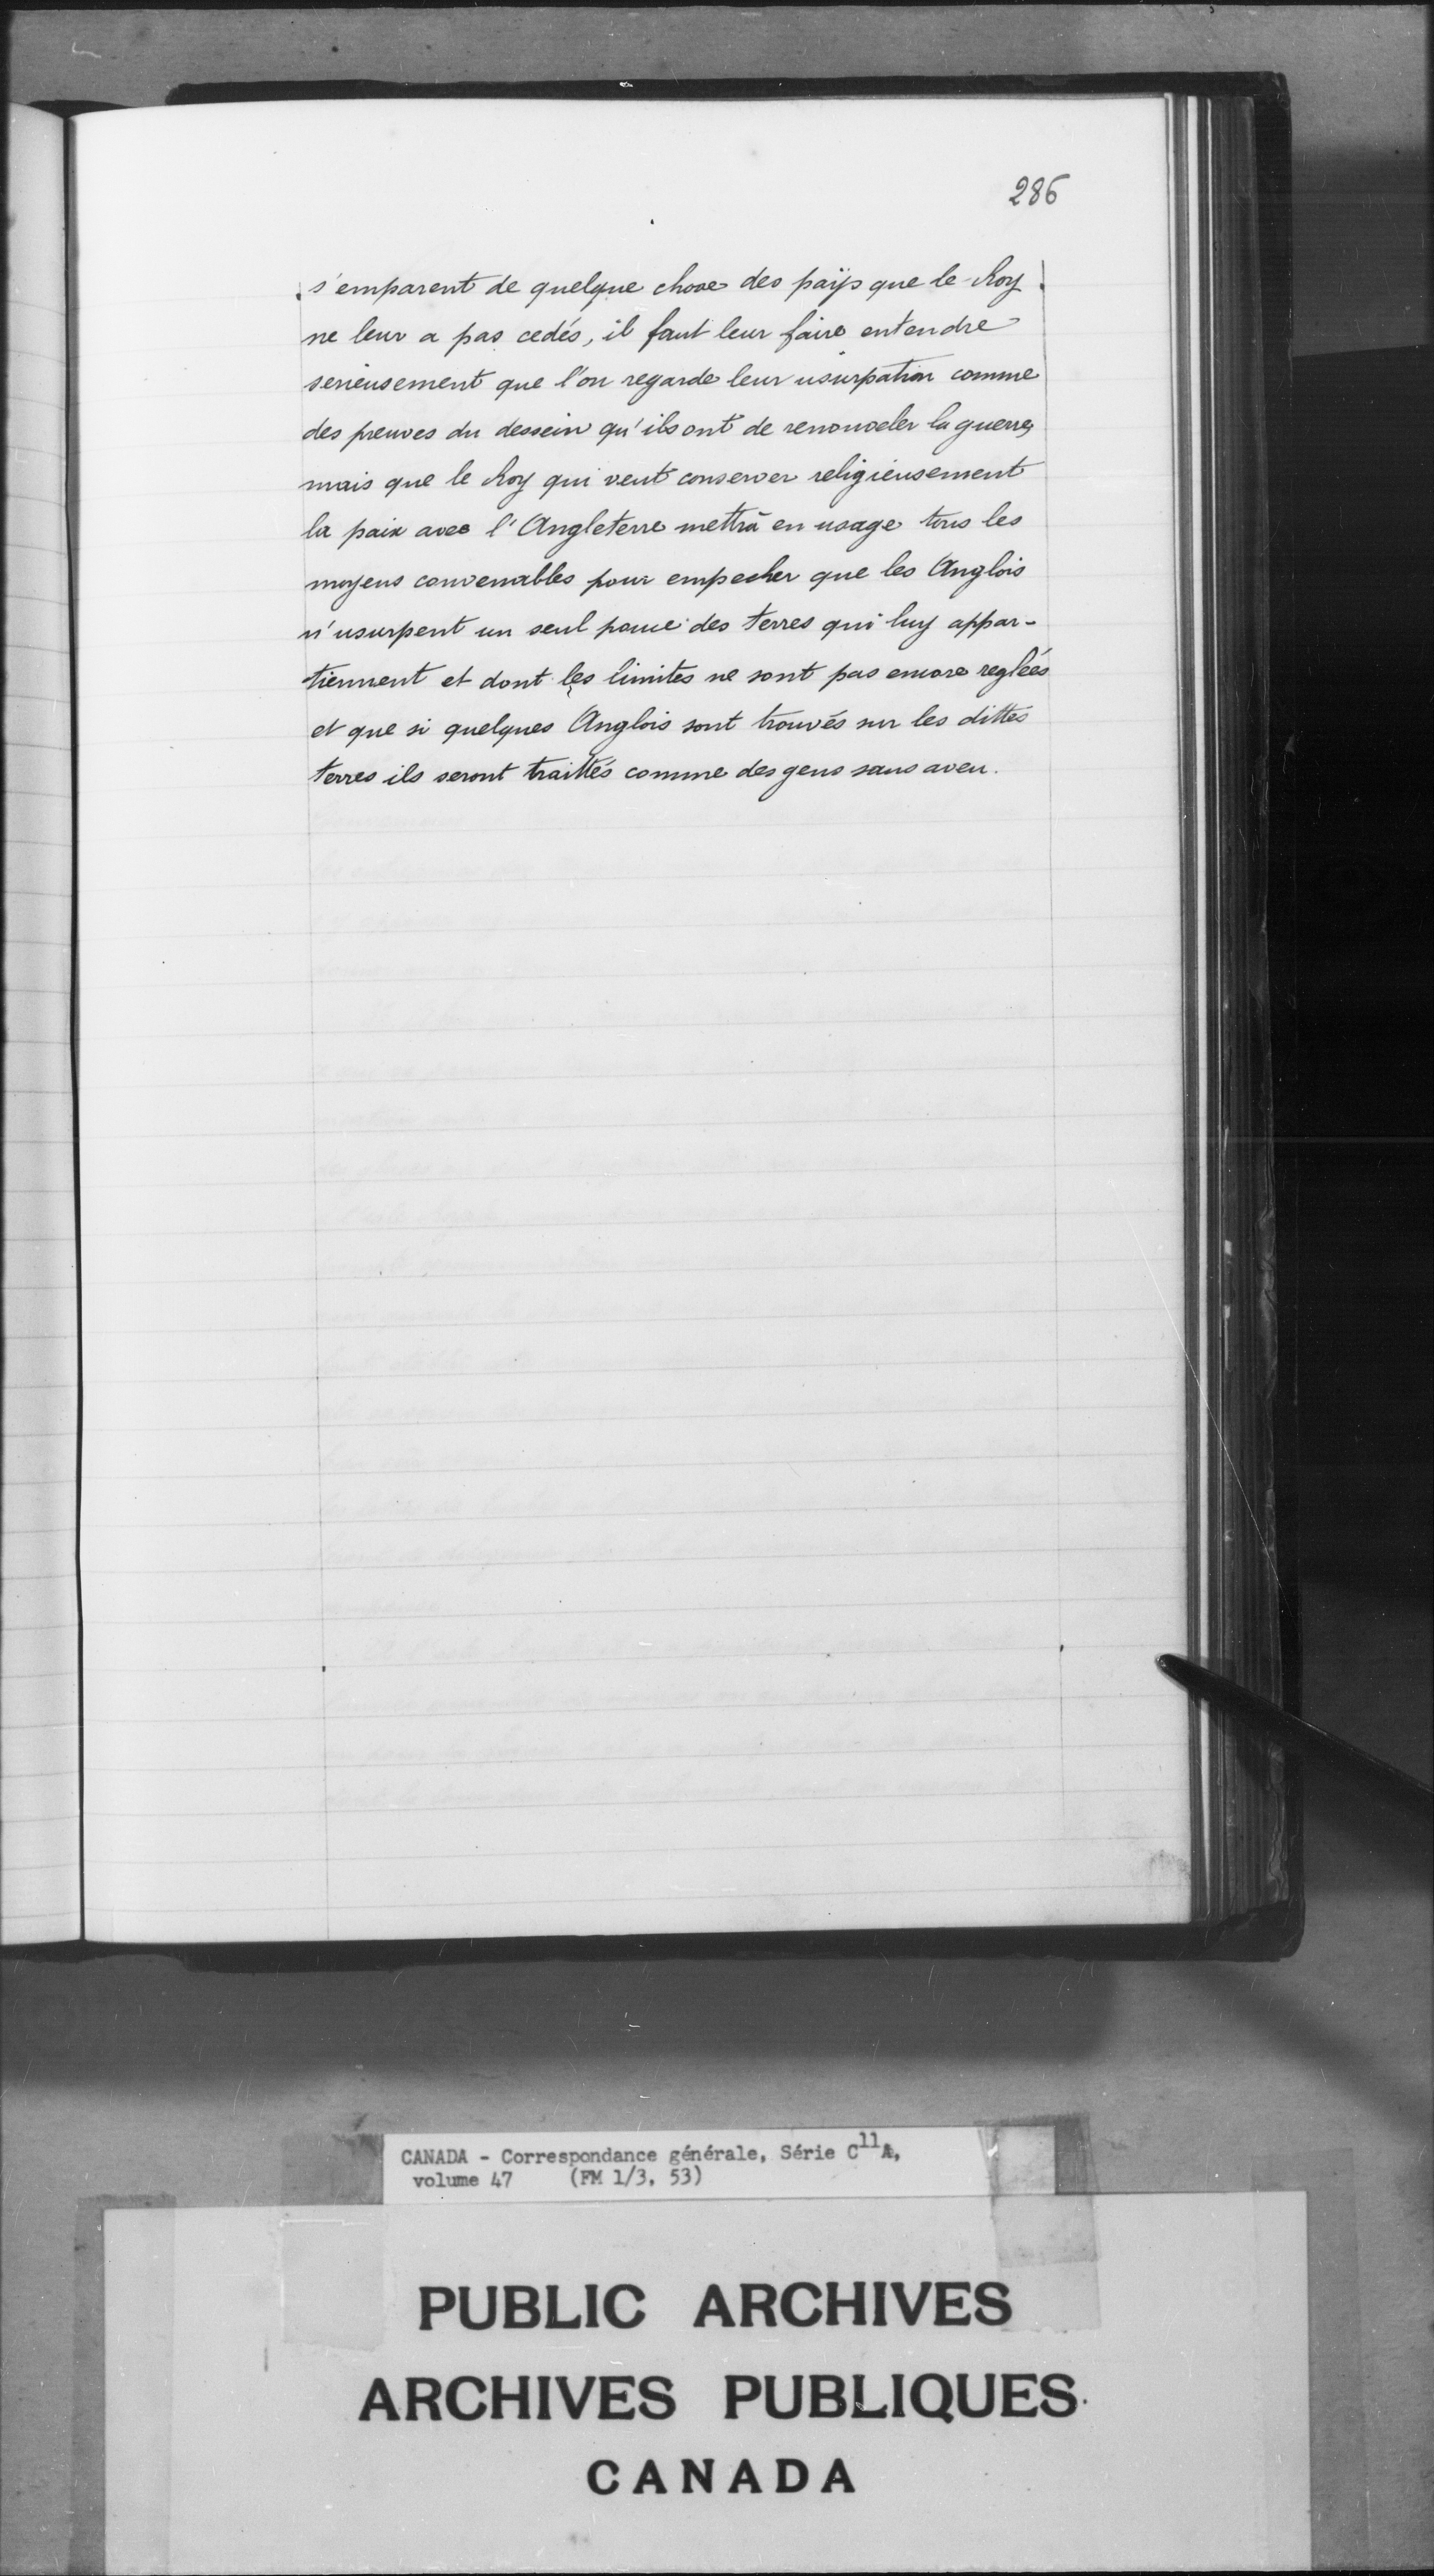 286
s'emparent de quelque chose des païs que le Roy
ne leur a pas cedés, il faut leur faire entendre
serieusement que l'on regarde leur usurpation comme
des preuves du dessein qu'ils ont de renouveler la guerre,
mais que le Roy qui veut conserver religieusement
la paix avec l'Angleterre mettra en usage tous les
moyens convenables pour empecher que les Anglois
n'usurpent un seul pouce des terres qui luy appar-
tiennent et dont les limites ne sont pas encore reglées
et que si quelques Anglois sont trouvés sur les dittes
terres ils seront traittés comme des gens sans aveu.
CANADA - Correspondance générale, Série C11A,
volume 47 (FM 1/3, 53)
PUBLIC ARCHIVES
ARCHIVES PUBLIQUES
CANADA